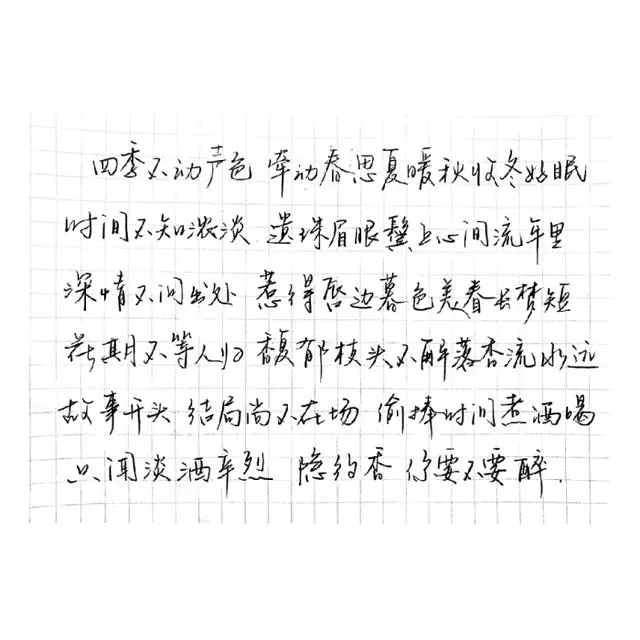 四季不动声色 牵动春思夏暖秋收冬好眠
时间不知浓淡 遗珠眉眼鬓上心间流年里
深情不问出处 惹得唇边暮色美春长梦短
花期不等人归 香馥郁枝头不解落香流水远
故事开头 结局尚不在场 偷捧时间煮酒喝
只闻淡酒辛烈 隐约香 你要不要醉.